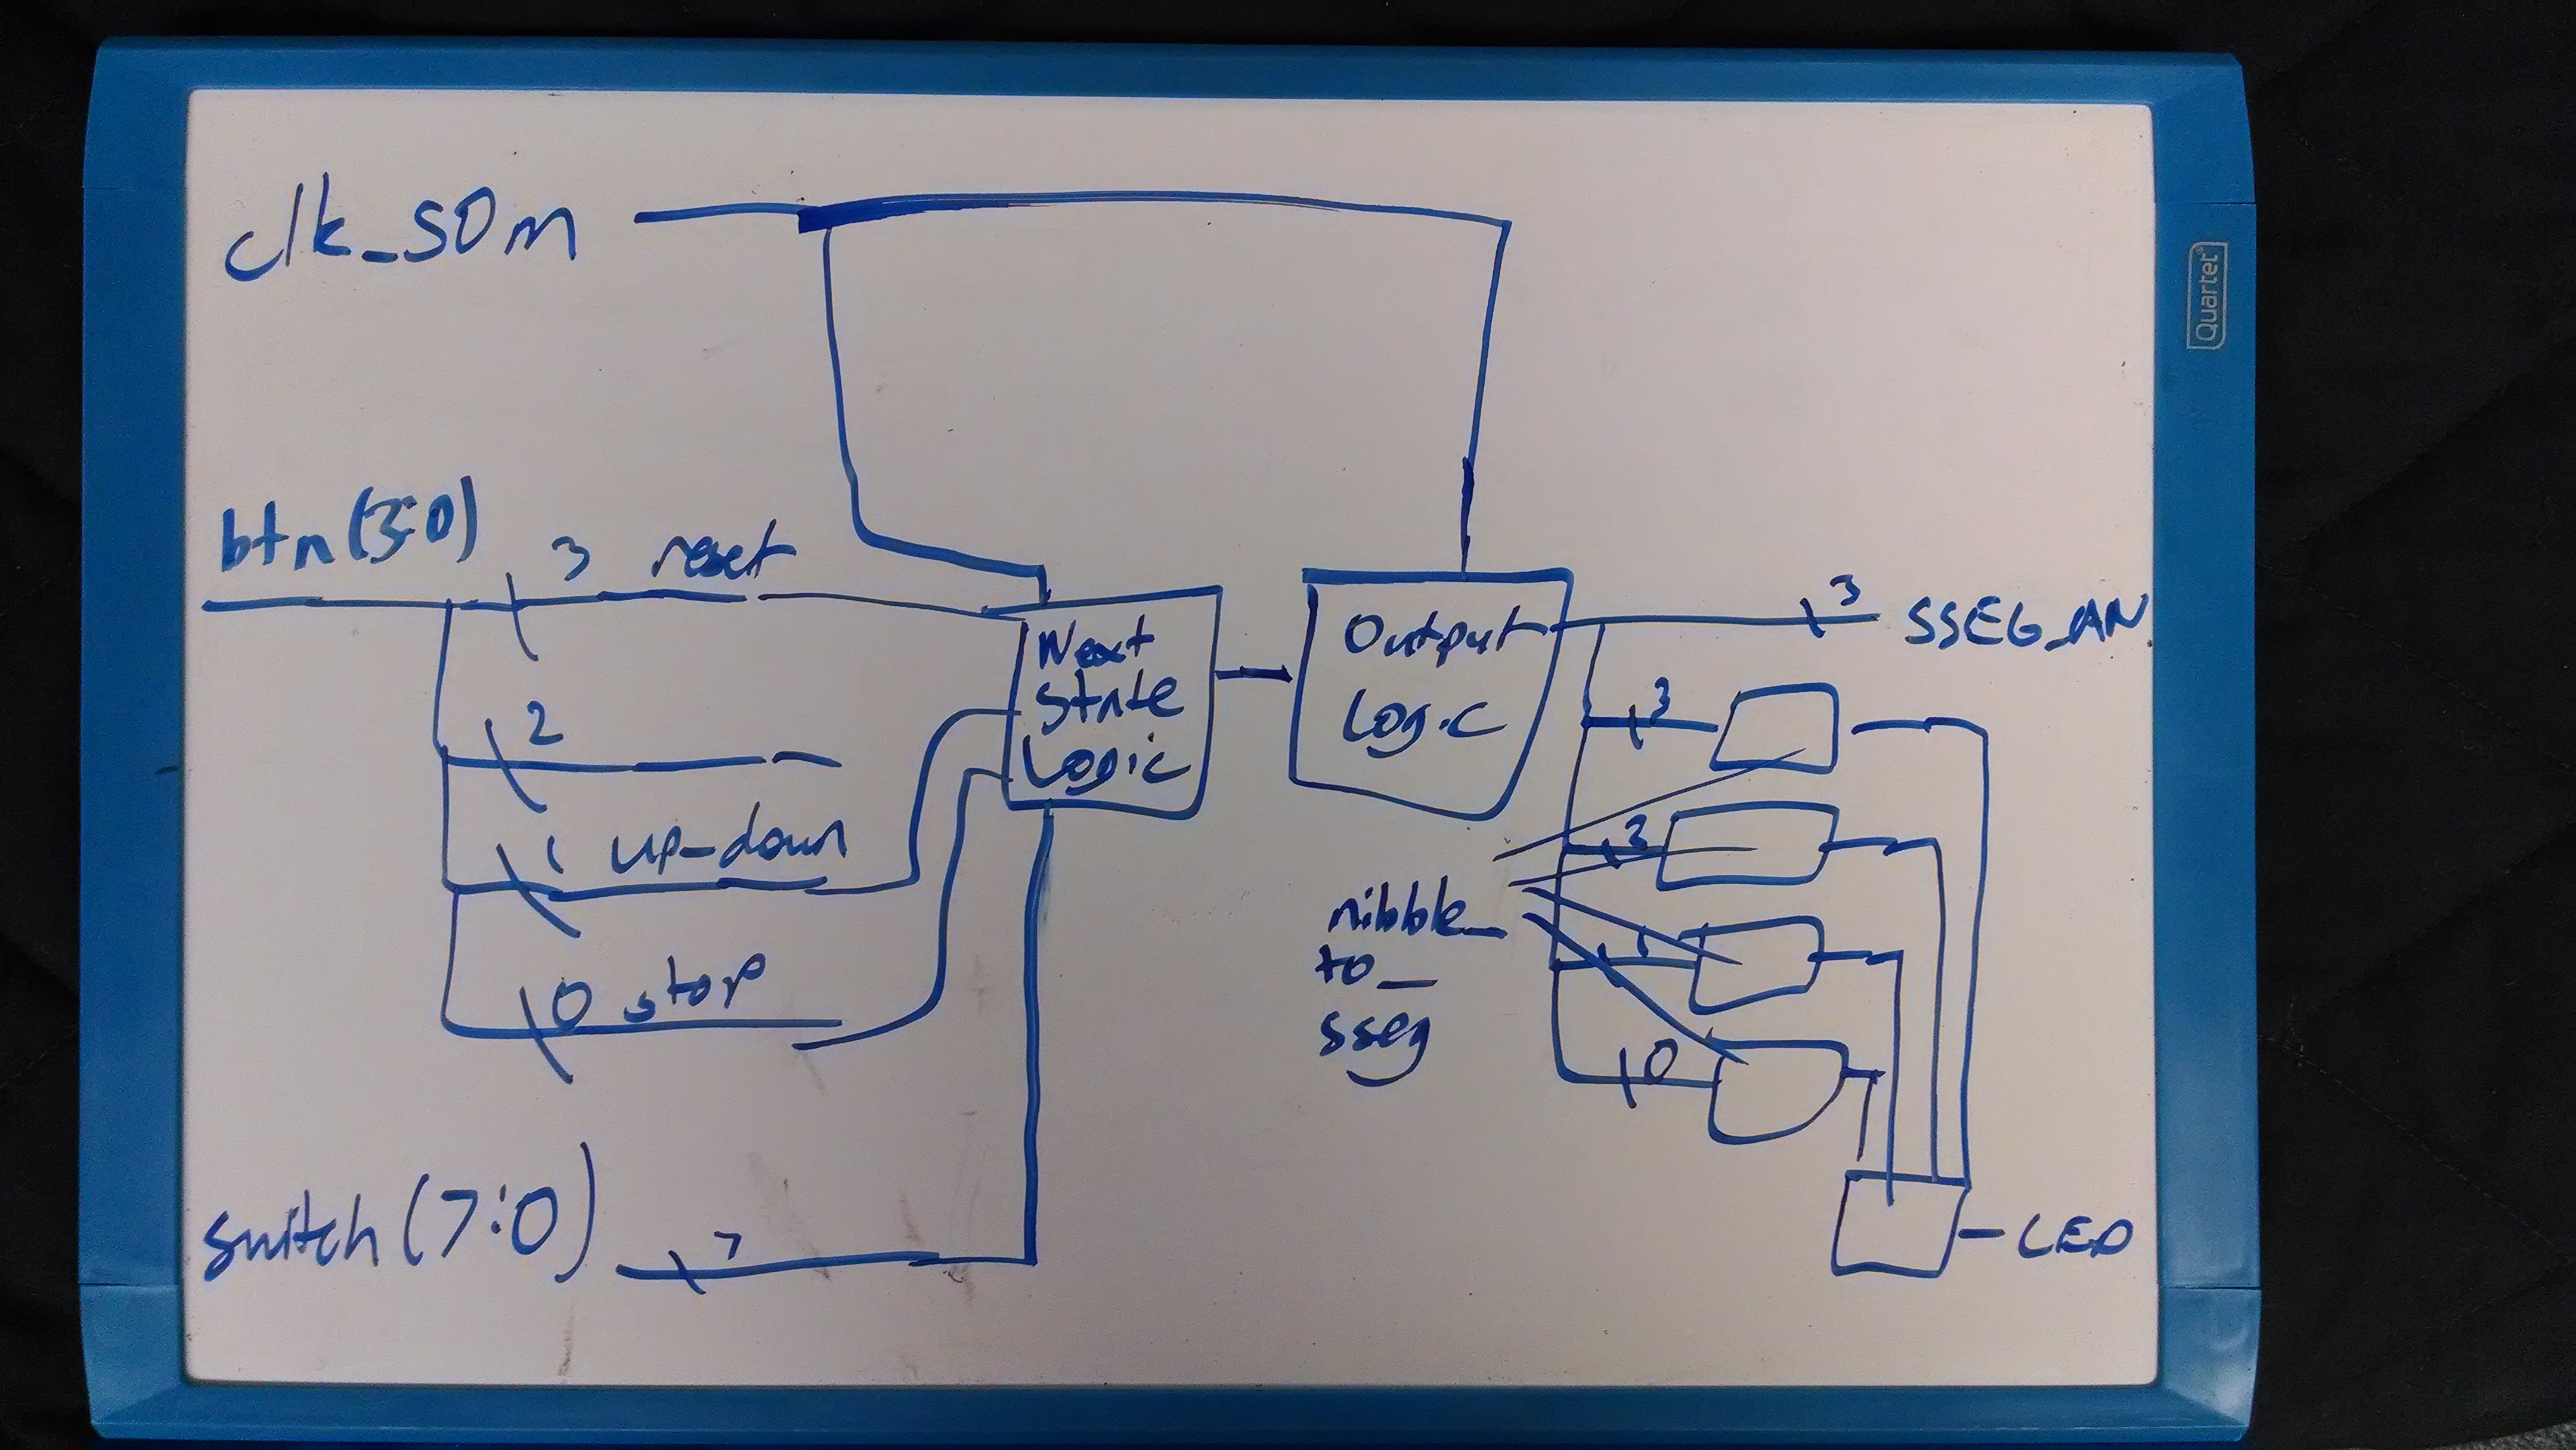 clk_50m
btn(3:0)
3 reset
2
1 up-down
0 stop
switch(7:0)
7
Next
State
Logic
Output
Logic
3
SSEG_AN
3
2
1
0
nibble_
to_
sseg
LED
Quartet